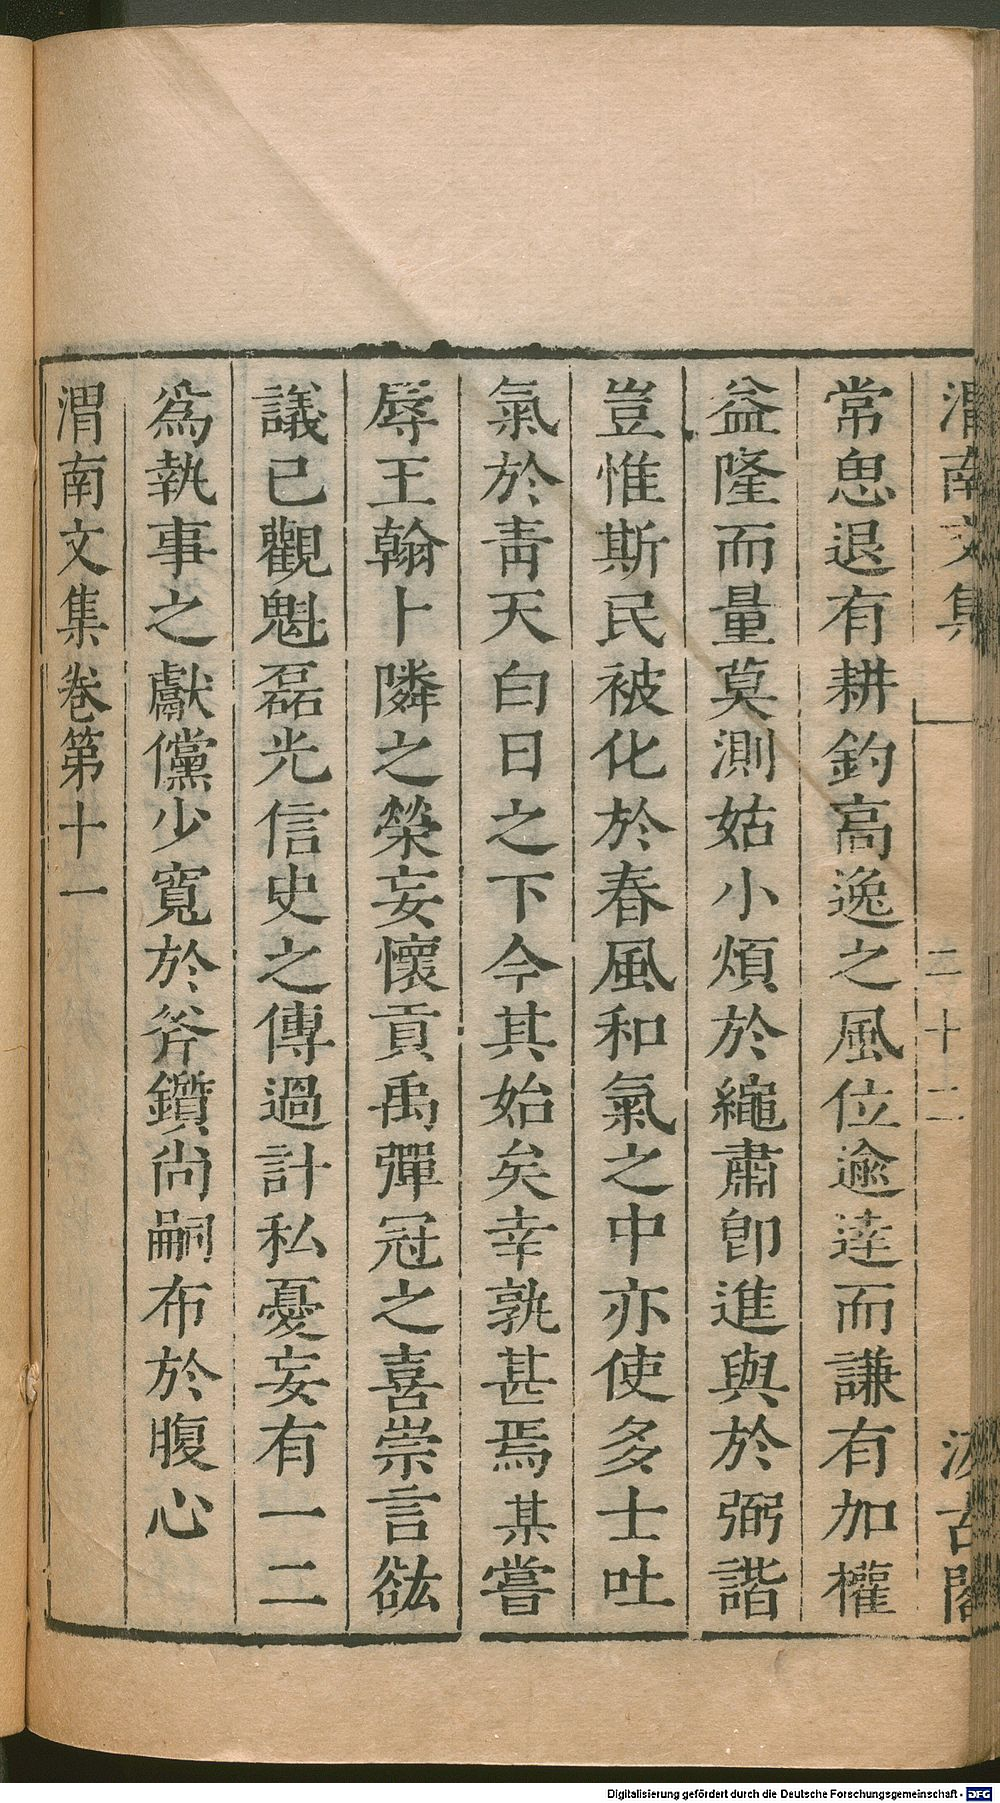 渭南文集 二十二 汲古閣
常思退有耕釣高逸之風位逾達而謙有加權
益隆而量莫測姑小煩於繩肅卽進與於弼諧
豈惟斯民被化於春風和氣之中亦使多士吐
氣於靑天白日之下今其始矣幸孰甚焉某嘗
辱王翰卜隣之榮妄懷貢禹彈冠之喜崇言谹
議已觀魁磊光信史之傳過計私憂妄有一二
爲執事之獻儻少寬於斧鑕尙嗣布於腹心
渭南文集卷第十一
Digitalisierung gefördert durch die Deutsche Forschungsgemeinschaft - DFG